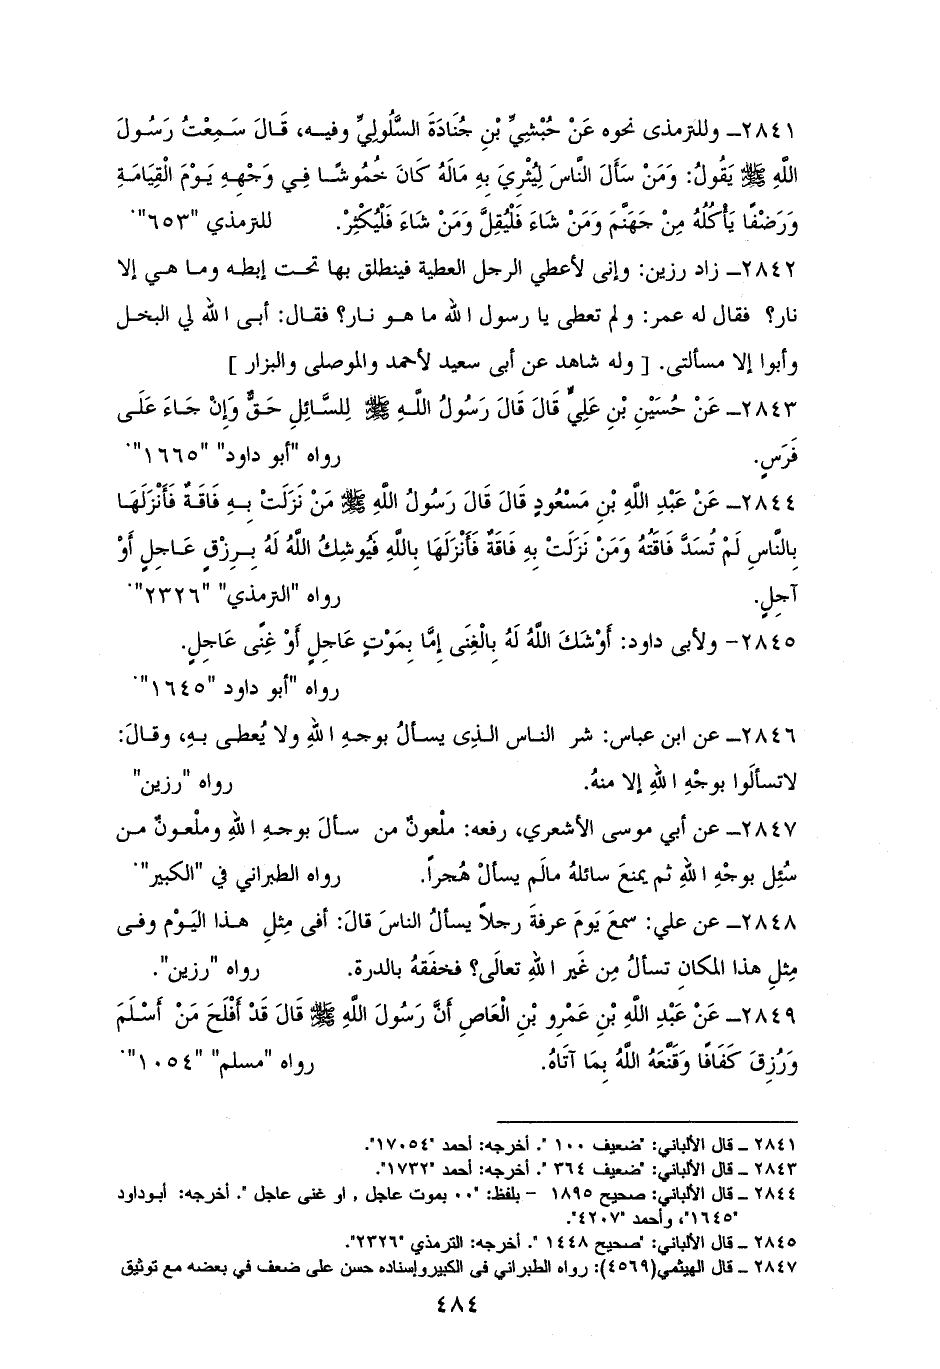 ٢٨٤١ــ وللترمذى نحوه عَنْ حُبْشِيِّ بْنِ جُنَادَةَ السَّلُولِيِّ وفيه، قَالَ سَمِعْتُ رَسُولَ
اللَّهِ ﷺ يَقُولُ: وَمَنْ سَأَلَ النَّاسَ لِيُثْرِيَ بِهِ مَالَهُ كَانَ خُمُوشًا فِي وَجْهِهِ يَوْمَ الْقِيَامَةِ
وَرَضْفًا يَأْكُلُهُ مِنْ جَهَنَّمَ وَمَنْ شَاءَ فَلْيُقِلَّ وَمَنْ شَاءَ فَلْيُكْثِرْ. للترمذي "٦٥٣".
٢٨٤٢ــ زاد رزين: وإنى لأعطي الرجل العطية فينطلق بها تحت إبطه وما هي إلا
نار؟ فقال له عمر: ولم تعطى يا رسول الله ما هو نار؟ فقال: أبى الله لي البخل
وأبوا إلا مسألتى. [ وله شاهد عن أبى سعيد لأحمد والموصلى والبزار ]
٢٨٤٣ــ عَنْ حُسَيْنِ بْنِ عَلِيٍّ قَالَ قَالَ رَسُولُ اللَّهِ ﷺ لِلسَّائِلِ حَقٌّ وَإِنْ جَاءَ عَلَى
فَرَسٍ. رواه "أبو داود" "١٦٦٥".
٢٨٤٤ــ عَنْ عَبْدِ اللَّهِ بْنِ مَسْعُودٍ قَالَ قَالَ رَسُولُ اللَّهِ ﷺ مَنْ نَزَلَتْ بِهِ فَاقَةٌ فَأَنْزَلَهَا
بِالنَّاسِ لَمْ تُسَدَّ فَاقَتُهُ وَمَنْ نَزَلَتْ بِهِ فَاقَةٌ فَأَنْزَلَهَا بِاللَّهِ فَيُوشِكُ اللَّهُ لَهُ بِرِزْقٍ عَاجِلٍ أَوْ
آجِلٍ. رواه "الترمذي" "٢٣٢٦".
٢٨٤٥- ولأبى داود: أَوْشَكَ اللَّهُ لَهُ بِالْغِنَى إِمَّا بِمَوْتٍ عَاجِلٍ أَوْ غِنًى عَاجِلٍ.
رواه "أبو داود "١٦٤٥".
٢٨٤٦ــ عن ابن عباس: شر الناس الذِى يسألُ بوجهِ اللهِ ولا يُعطى بهِ، وقالَ:
لاتسألَوا بوجْهِ اللهِ إلا منهُ. رواه "رزين"
٢٨٤٧ــ عن أبي موسى الأشعري، رفعه: ملْعونٌ من سألَ بوجهِ اللهِ وملْعونٌ من
سُئِل بوجْهِ اللهِ ثم يمنعَ سائلهُ مالَم يسألْ هُجراً. رواه الطبراني في "الكبير".
٢٨٤٨ــ عن علي: سمعَ يَومَ عرفةَ رجلاً يسألُ الناسَ قالَ: أفى مِثلِ هذا اليَوْم وفى
مِثلِ هذا المكانِ تسألُ مِن غَيرِ اللهِ تعالَى؟ فخفَقهُ بالدرة. رواه "رزين".
٢٨٤٩ــ عَنْ عَبْدِ اللَّهِ بْنِ عَمْرِو بْنِ الْعَاصِ أَنَّ رَسُولَ اللَّهِ ﷺ قَالَ قَدْ أَفْلَحَ مَنْ أَسْلَمَ
وَرُزِقَ كَفَافًا وَقَنَّعَهُ اللَّهُ بِمَا آتَاهُ. رواه "مسلم" "١٠٥٤".
٢٨٤١ ــ قال الألباني: "ضعيف ١٠٠ ". أخرجه: أحمد "١٧٠٥٤".
٢٨٤٣ ــ قال الألباني: "ضعيف ٣٦٤ ". أخرجه: أحمد "١٧٣٢".
٢٨٤٤ ــ قال الألباني: صحيح ١٨٩٥ - بلفظ: "٠٠ بموت عاجل , او غنى عاجل ". أخرجه: أبوداود
"١٦٤٥"، وأحمد "٤٢٠٧".
٢٨٤٥ ــ قال الألباني: "صحيح ١٤٤٨ ". أخرجه: الترمذي "٢٣٢٦".
٢٨٤٧ ــ قال الهيثمي(٤٥٦٩): رواه الطبراني فى الكبيروإسناده حسن على ضعف في بعضه مع توثيق
٤٨٤